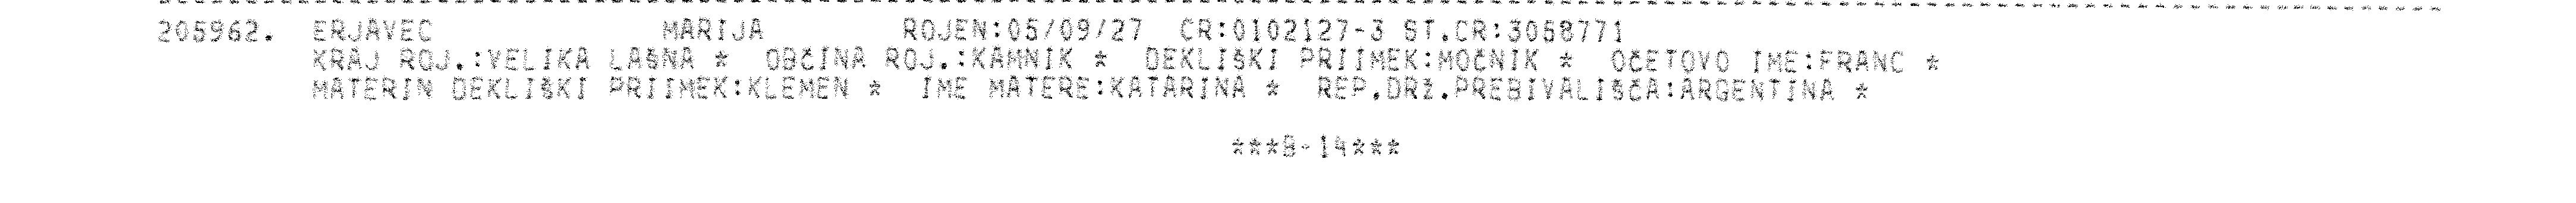 205962. ERJAVEC MARIJA ROJEN:05/09/27 CR:0102127-3 ST.CR:3058771
KRAJ ROJ.:VELIKA LAŠNA * OBČINA ROJ.:KAMNIK * DEKLIŠKI PRIIMEK:MOČNIK * OČETOVO IME:FRANC *
MATERIN DEKLIŠKI PRIIMEK:KLEMEN * IME MATERE:KATARINA * REP.DRŽ.PREBIVALIŠČA:ARGENTINA *
***B-14***